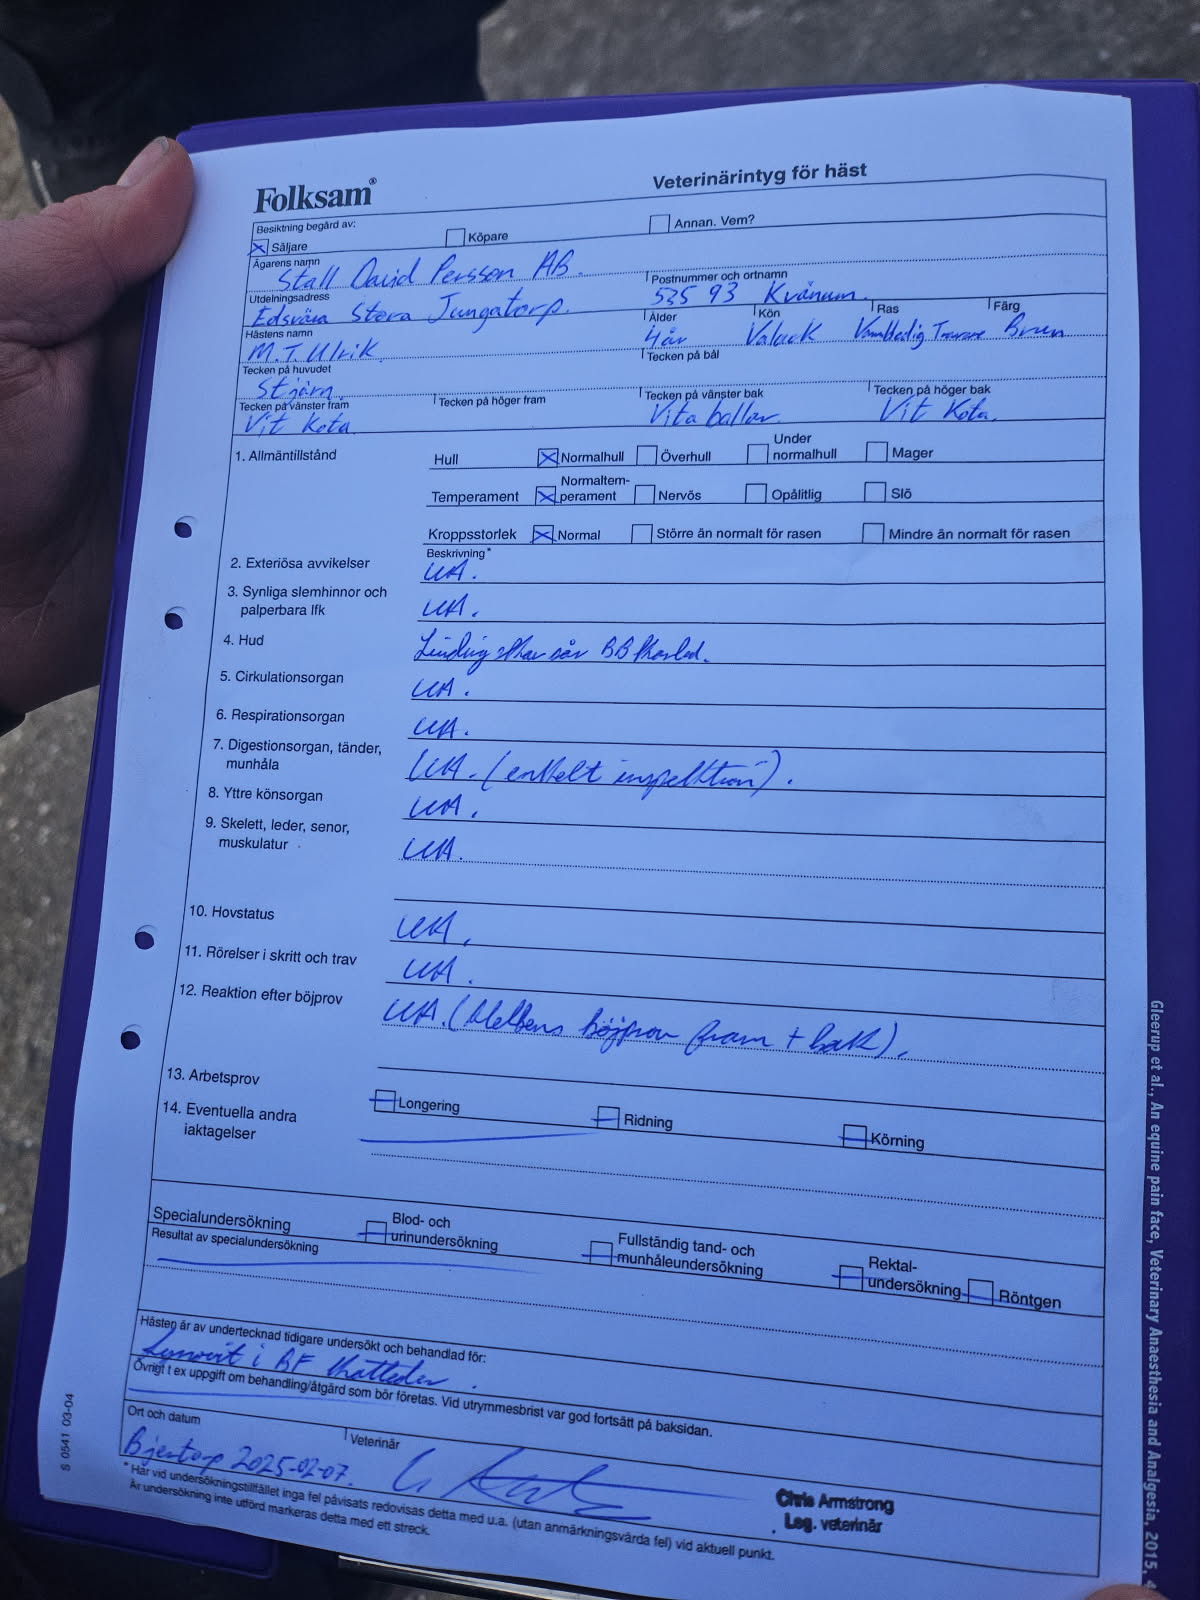 Folksam®
Veterinärintyg för häst
Besiktning begärd av:
Säljare Köpare Annan. Vem?
Ägarens namn
Stall David Persson AB.
Utdelningsadress Postnummer och ortnamn
Edsvära Stora Jungatorp. 535 93 Kvänum.
Hästens namn Ålder Kön Ras Färg
M.T. Ulrik 4 år Valack Varmblodig Travare Brun
Tecken på huvudet Tecken på bål
Stjärn.
Tecken på vänster fram Tecken på höger fram Tecken på vänster bak Tecken på höger bak
Vit Kota Vita ballar. Vit Kota.
1. Allmäntillstånd Hull Normalhull Överhull Under normalhull Mager
Temperament Normaltem-perament Nervös Opålitlig Slö
Kroppsstorlek Normal Större än normalt för rasen Mindre än normalt för rasen
Beskrivning*
2. Exteriösa avvikelser UA.
3. Synliga slemhinnor och
palperbara lfk UA.
4. Hud sår BB
5. Cirkulationsorgan UA.
6. Respirationsorgan UA.
7. Digestionsorgan, tänder,
munhåla UA. (enkelt inspektion).
8. Yttre könsorgan UA.
9. Skelett, leder, senor,
muskulatur UA.
10. Hovstatus UA.
11. Rörelser i skritt och trav UA.
12. Reaktion efter böjprov UA. (böjprov fram + bak).
13. Arbetsprov Longering Ridning Körning
14. Eventuella andra
iaktagelser
Specialundersökning Blod- och urinundersökning Fullständig tand- och munhåleundersökning Rektal-undersökning Röntgen
Resultat av specialundersökning
Hästen är av undertecknad tidigare undersökt och behandlad för:
i BF
Övrigt t ex uppgift om behandling/åtgärd som bör företas. Vid utrymmesbrist var god fortsätt på baksidan.
Ort och datum Veterinär
Bjertorp 2025-02-07.
Chris Armstrong
Leg. veterinär
* Har vid undersökningstillfället inga fel påvisats redovisas detta med u.a. (utan anmärkningsvärda fel) vid aktuell punkt.
Är undersökning inte utförd markeras detta med ett streck.
S 0541 03-04
Gleerup et al., An equine pain face, Veterinary Anaesthesia and Analgesia, 2015, 4